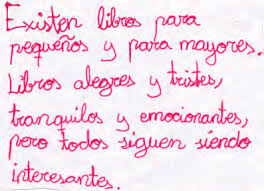 Existen libros para
pequeños y para mayores.
Libros alegres y tristes,
tranquilos y emocionantes,
pero todos siguen siendo
interesantes.